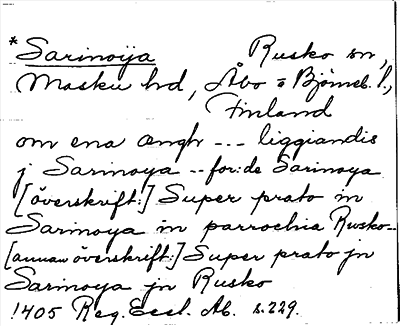 *Sarinoija Rusko sn,
Masku hd, Åbo o Björneb. l.,
Finland
om ena ængh --- liggiandis
j Sarinoya -- for:de Sarinoya
[överskrift:] Super prato in
Sarinoya in parrochia Rusko--
[annan överskrift:] Super prato jn
Sarinoya jn Rusko
1405 Reg. Eccl. Ab. s. 229.